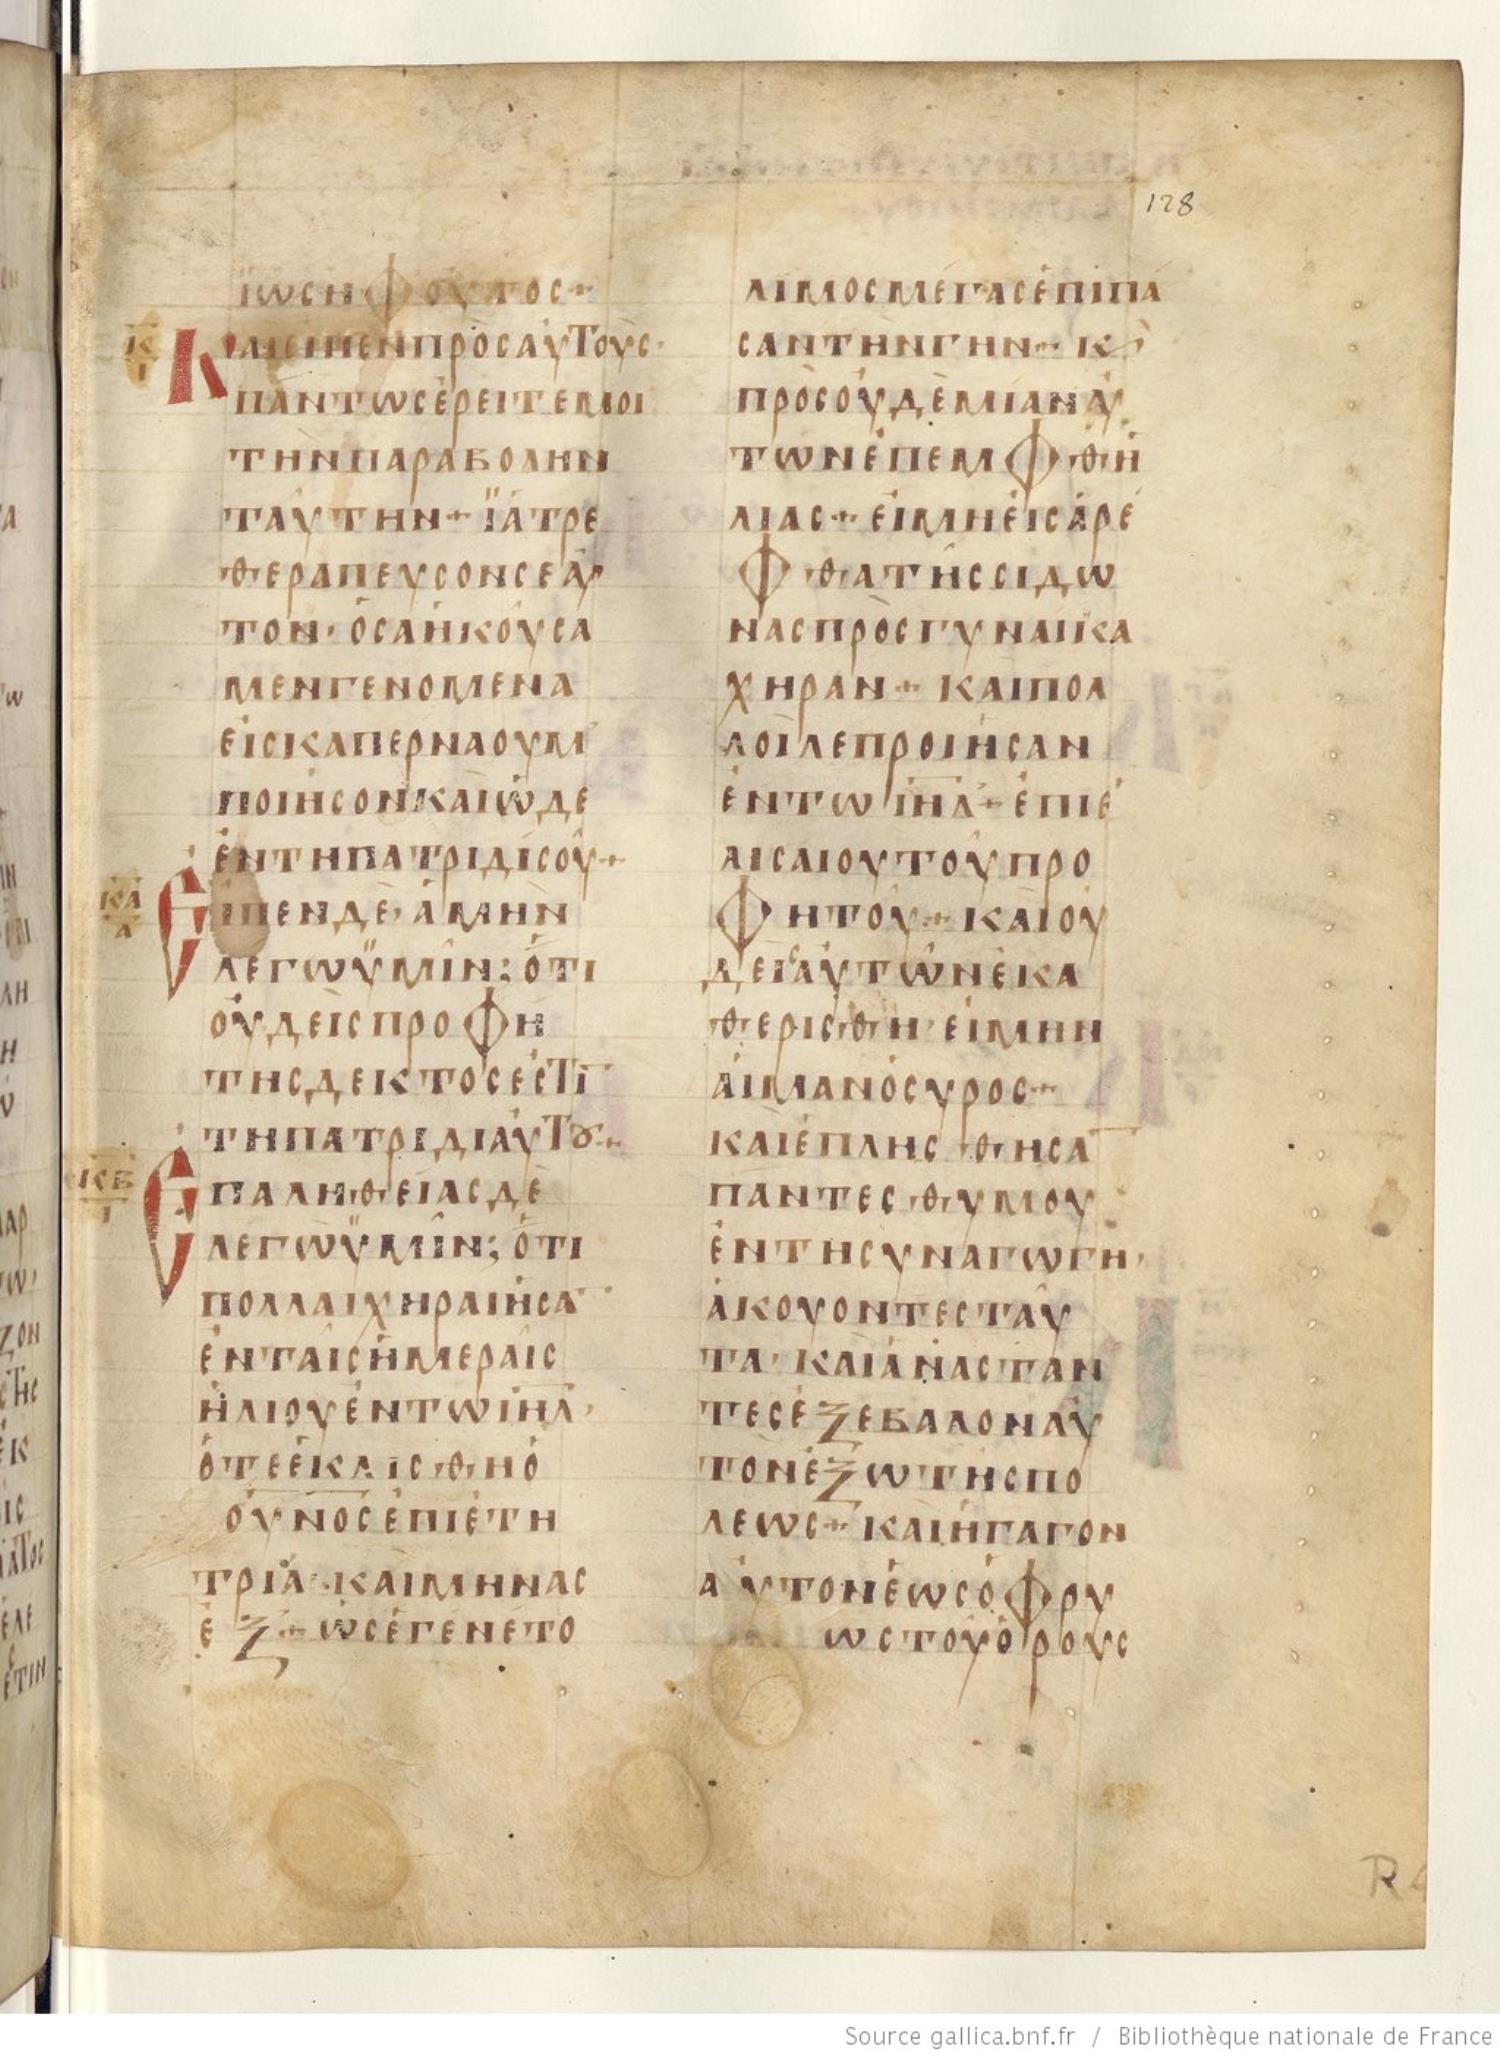 128
ΪΩΣΗΦΟΥΤΟΣ
Κ
Ι
ΚΑΙΕΙΠΕΝΠΡΟΣΑΥΤΟΥΣ·
ΠΑΝΤΩΣΕΡΕΙΤΕΜΟΙ
ΤΗΝΠΑΡΑΒΟΛΗΝ
ΤΑΥΤΗΝ+ΪΑΤΡΕ
ΘΕΡΑΠΕΥΣΟΝΣΕΑΥ
ΤΟΝ·ΟΣΑΗΚΟΥΣΑ
ΜΕΝΓΕΝΟΜΕΝΑ
ΕΙΣΚΑΠΕΡΝΑΟΥΜ
ΠΟΙΗΣΟΝΚΑΙΩΔΕ
ΕΝΤΗΠΑΤΡΙΔΙΣΟΥ+
ΚΑ
Α
ΕΙΠΕΝΔΕ·ΑΜΗΝ
ΛΕΓΩΫΜΙΝ;ΟΤΙ
ΟΥΔΕΙΣΠΡΟΦΗ
ΤΗΣΔΕΚΤΟΣΕΣΤΙ̅
ΤΗΠΑΤΡΙΔΙΑΥΤΟΥ+
ΚΒ
Ι
ΕΠΑΛΗΘΕΙΑΣΔΕ
ΛΕΓΩΫΜΙΝ;ΟΤΙ
ΠΟΛΛΑΙΧΗΡΑΙΗΣΑ̅
ΕΝΤΑΙΣΗΜΕΡΑΙΣ
ΗΛΙΟΥΕΝΤΩΙΗΛ̅·
ΟΤΕΕΚΛΙΣΘΗΟ
ΟΥΝΟΣΕΠΙΕΤΗ
ΤΡΙΑ·ΚΑΙΜΗΝΑΣ
ΕΞ+ΩΣΕΓΕΝΕΤΟ
ΛΙΜΟΣΜΕΓΑΣΕΠΙΠΑ
ΣΑΝΤΗΝΓΗΝ+Κ
ΠΡΟΣΟΥΔΕΜΙΑΝΑΥ
ΤΩΝΕΠΕΜΦΘΗ
ΛΙΑΣ+ΕΙΜΗΕΙΣΑΡΕ
ΦΘΑΤΗΣΣΙΔΩ
ΝΑΣΠΡΟΣΓΥΝΑΙΚΑ
ΧΗΡΑΝ+ΚΑΙΠΟΛ
ΛΟΙΛΕΠΡΟΙΗΣΑΝ
ΕΝΤΩΙΗΛ̅+ΕΠΙΕ
ΛΙΣΑΙΟΥΤΟΥΠΡΟ
ΦΗΤΟΥ+ΚΑΙΟΥ
ΔΕΙΣΑΥΤΩΝΕΚΑ
ΘΕΡΙΣΘΗ·ΕΙΜΗΝ
ΑΙΜΑΝΟΣΥΡΟΣ+
ΚΑΙΕΠΛΗΣΘΗΣΑ̅
ΠΑΝΤΕΣΘΥΜΟΥ
ΕΝΤΗΣΥΝΑΓΩΓΗ·
ΑΚΟΥΟΝΤΕΣΤΑΥ
ΤΑ·ΚΑΙΑΝΑΣΤΑΝ
ΤΕΣΕΞΕΒΑΛΟΝΑΥ
ΤΟΝΕΞΩΤΗΣΠΟ
ΛΕΩΣ+ΚΑΙΗΓΑΓΟΝ
ΑΥΤΟΝΕΩΣΟΦΡΥ
ΩΣΤΟΥΟΡΟΥΣ
Source gallica.bnf.fr / Bibliothèque nationale de France